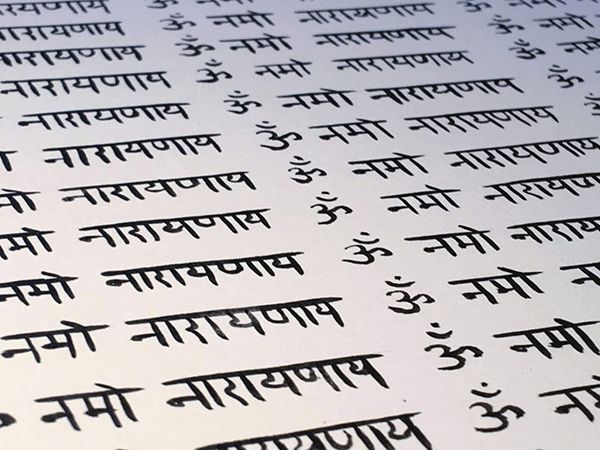 नारायणाय ॐ
नारायणाय ॐ नमो नारायणाय ॐ
नारायणाय ॐ नमो नारायणाय ॐ नमो
नारायणाय ॐ नमो नारायणाय ॐ नमो
नारायणाय ॐ नमो नारायणाय ॐ
नारायणाय ॐ नमो नारायणाय
नारायणाय ॐ नमो नारायणा
मो नारायणाय ॐ नमो नारायण
नमो नारायणाय ॐ नमो नाराय
नमो नारायणाय ॐ नमो ना
नमो नारायणाय ॐ नमो
नारायणाय ॐ नम